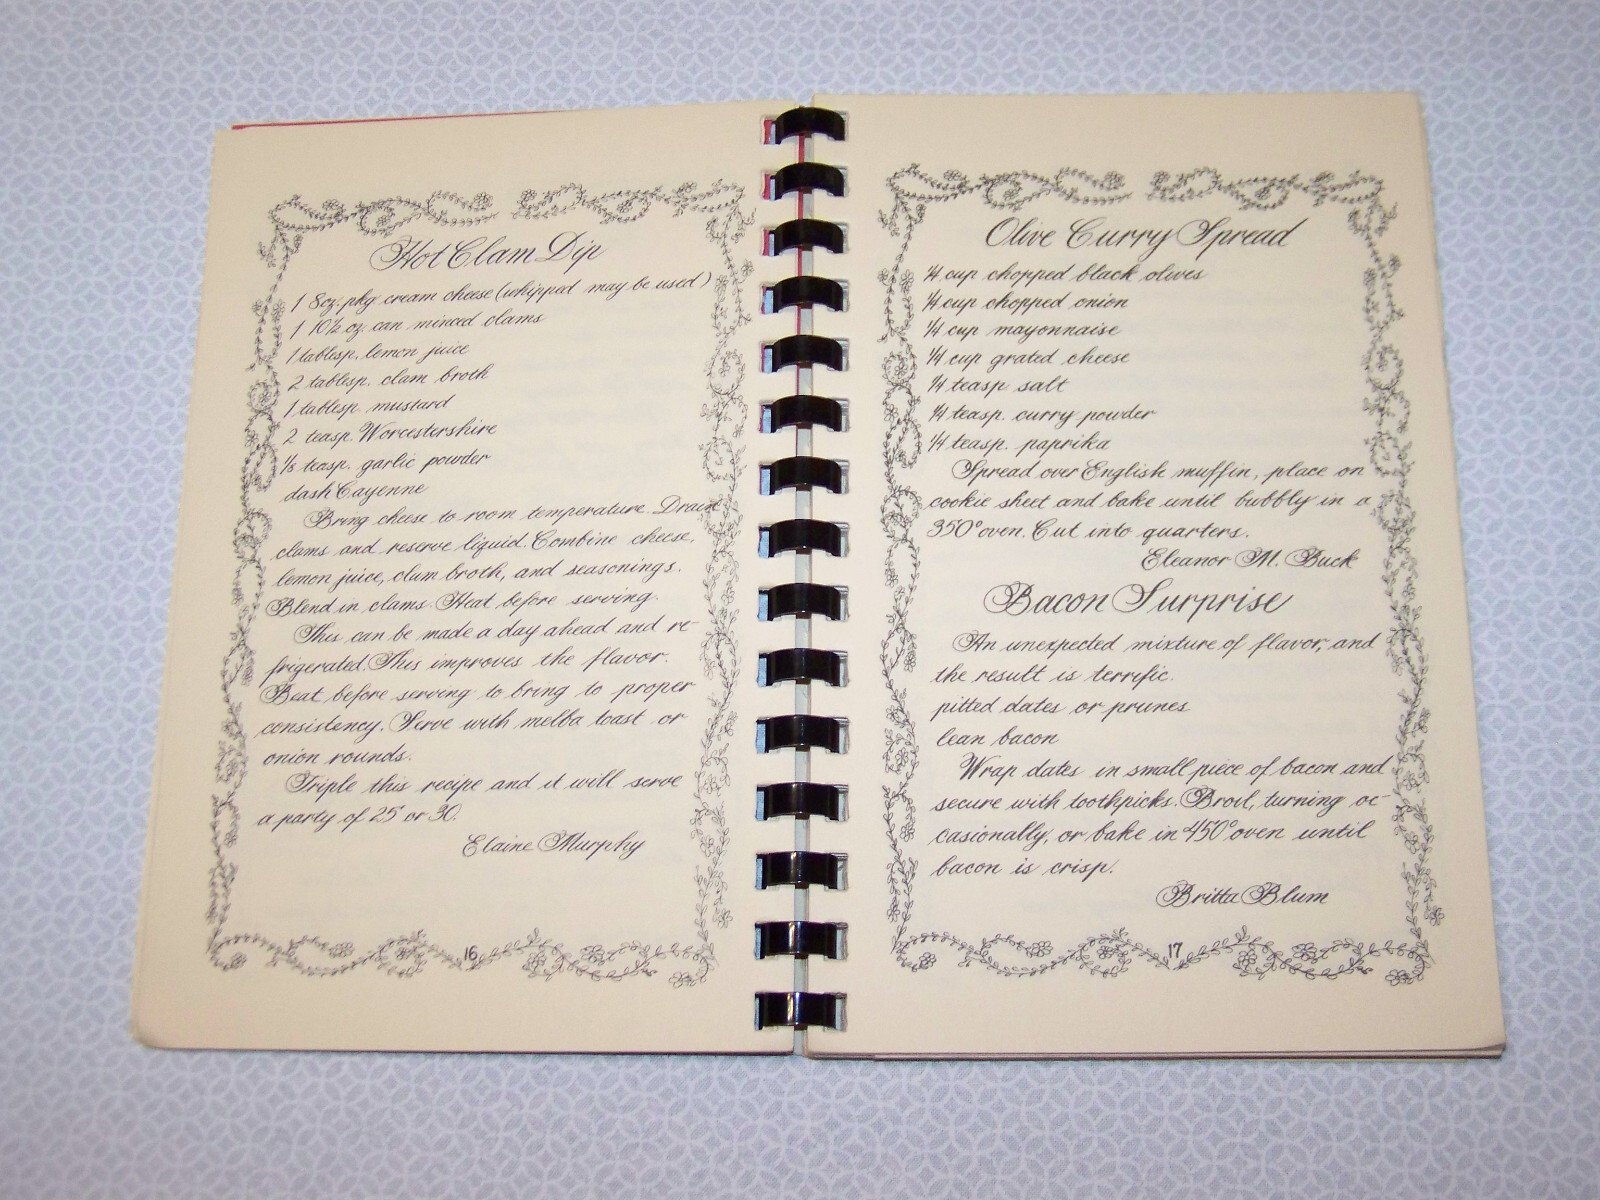 Hot Clam Dip
1 8oz. pkg cream cheese (whipped may be used)
1 10½ oz. can minced clams
1 tablesp. lemon juice
2 tablesp. clam broth
1 tablesp. mustard
2 teasp. Worcestershire
⅛ teasp. garlic powder
dash Cayenne
Bring cheese to room temperature. Drain
clams and reserve liquid. Combine cheese,
lemon juice, clam broth, and seasonings.
Blend in clams. Heat before serving.
This can be made a day ahead and re-
frigerated. This improves the flavor.
Beat before serving to bring to proper
consistency. Serve with melba toast or
onion rounds.
Triple this recipe and it will serve
a party of 25 or 30.
Elaine Murphy
16
Olive Curry Spread
¼ cup chopped black olives
¼ cup chopped onion
¼ cup mayonnaise
¼ cup grated cheese
¼ teasp salt
¼ teasp. curry powder
¼ teasp. paprika
Spread over English muffin, place on
cookie sheet and bake until bubbly in a
350° oven. Cut into quarters.
Eleanor M. Buck
Bacon Surprise
An unexpected mixture of flavor, and
the result is terrific.
pitted dates or prunes
lean bacon
Wrap dates in small piece of bacon and
secure with toothpicks. Broil, turning oc-
casionally, or bake in 450° oven until
bacon is crisp.
Britta Blum
17